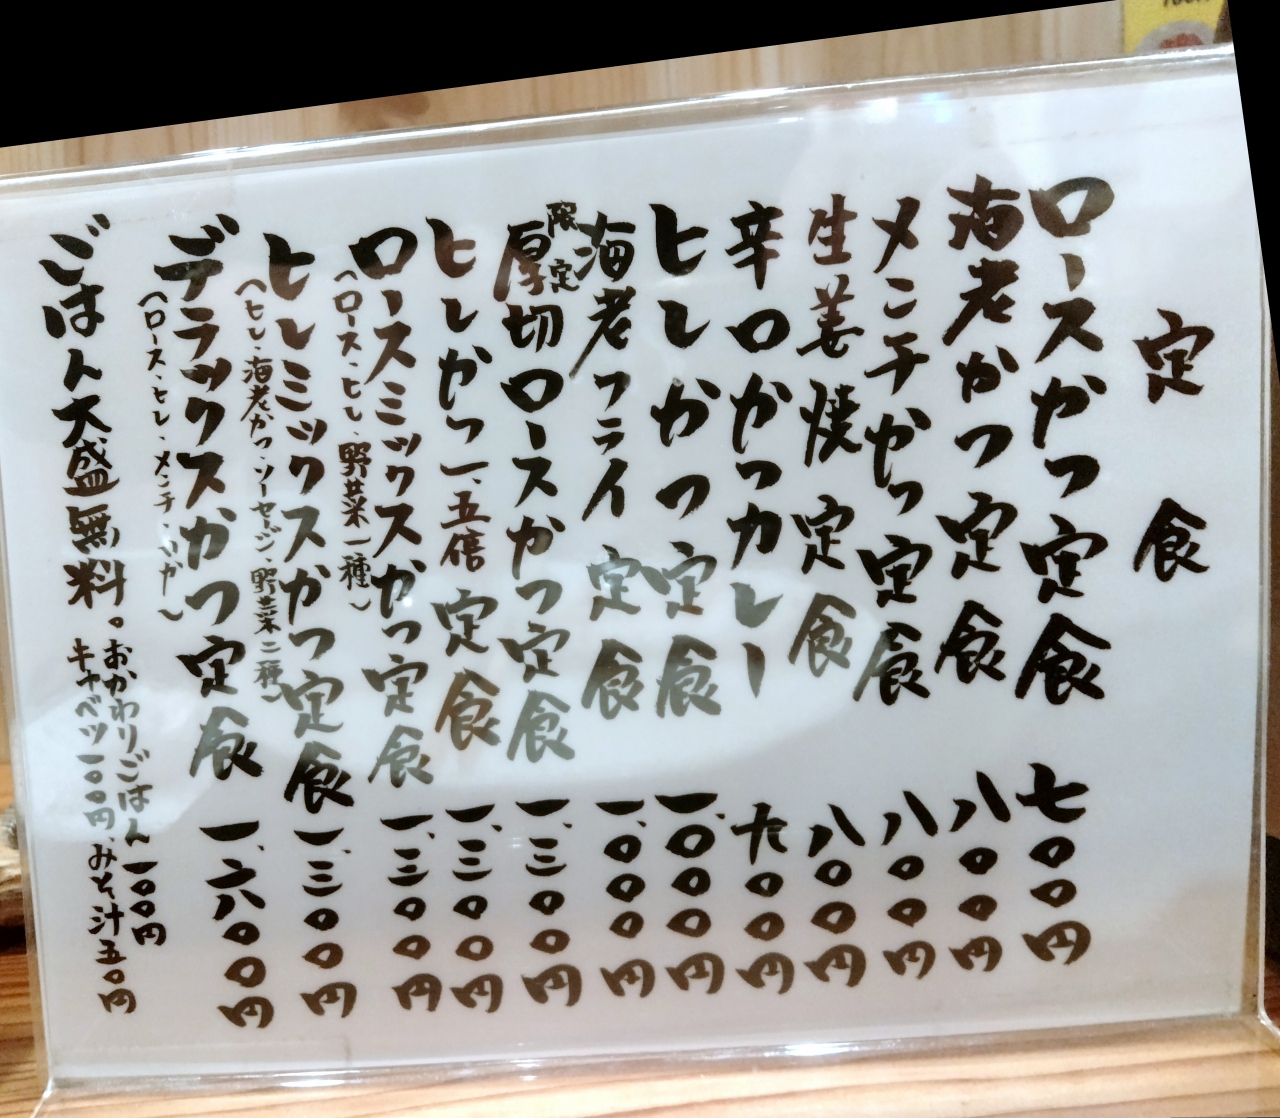 定食
ロースかつ定食 七〇〇円
海老かつ定食 八〇〇円
メンチかつ定食 八〇〇円
生姜焼定食 八〇〇円
辛口かつカレー 九〇〇円
ヒレかつ定食 一、〇〇〇円
海老フライ定食 一、〇〇〇円
限定
厚切ロースかつ定食 一、三〇〇円
ヒレかつ一、五倍定食 一、三〇〇円
ロースミックスかつ定食 一、三〇〇円
(ロース・ヒレ、野菜一種)
ヒレミックスかつ定食 一、三〇〇円
(ヒレ・海老かつ・ソーセージ・野菜二種)
デラックスかつ定食 一、六〇〇円
(ロース・ヒレ・メンチ・いか)
ごはん大盛無料。
おかわりごはん一〇〇円
キャベツ一〇〇円、みそ汁五〇円